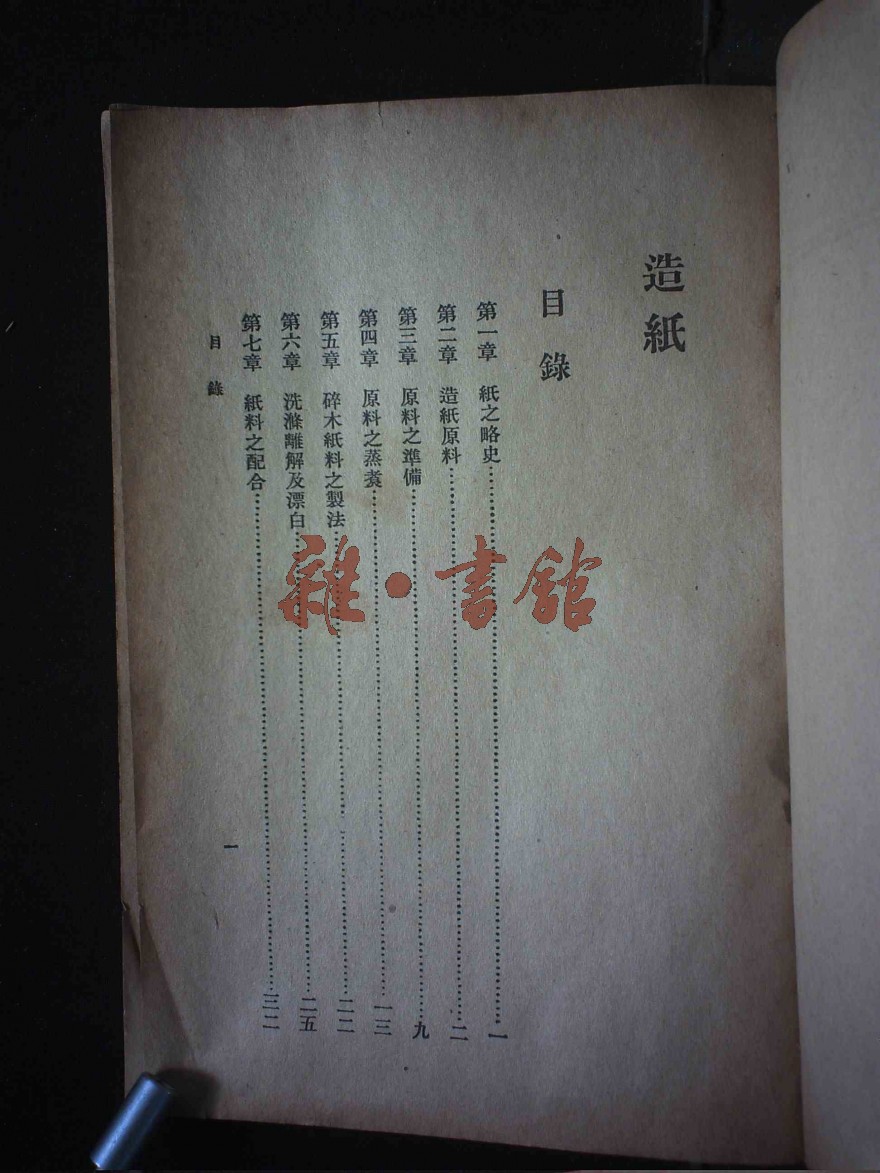 造紙
目錄
第一章 紙之略史……一
第二章 造紙原料……二
第三章 原料之準備……九
第四章 原料之蒸煑……一三
第五章 碎木紙料之製法……二二
第六章 洗滌離解及漂白……二五
第七章 紙料之配合……三二
目錄
一
雜·書館